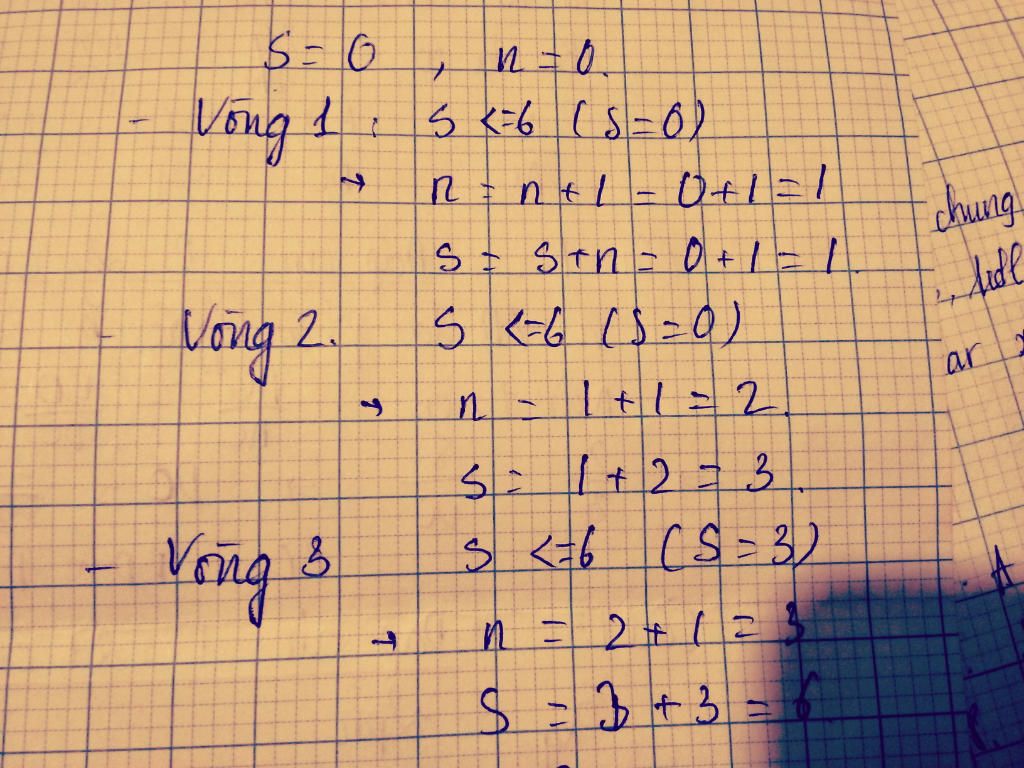 S = 0 , n = 0.
- Vòng 1 : S <=6 (S=0)
→ n = n+1 = 0+1 = 1
S = S+n = 0+1 = 1.
- Vòng 2. S <=6 (S=0)
→ n = 1+1 = 2.
S = 1+2 = 3.
- Vòng 3 S <=6 (S=3)
→ n = 2+1 = 3
S = 3+3 = 6
chung
ar
A